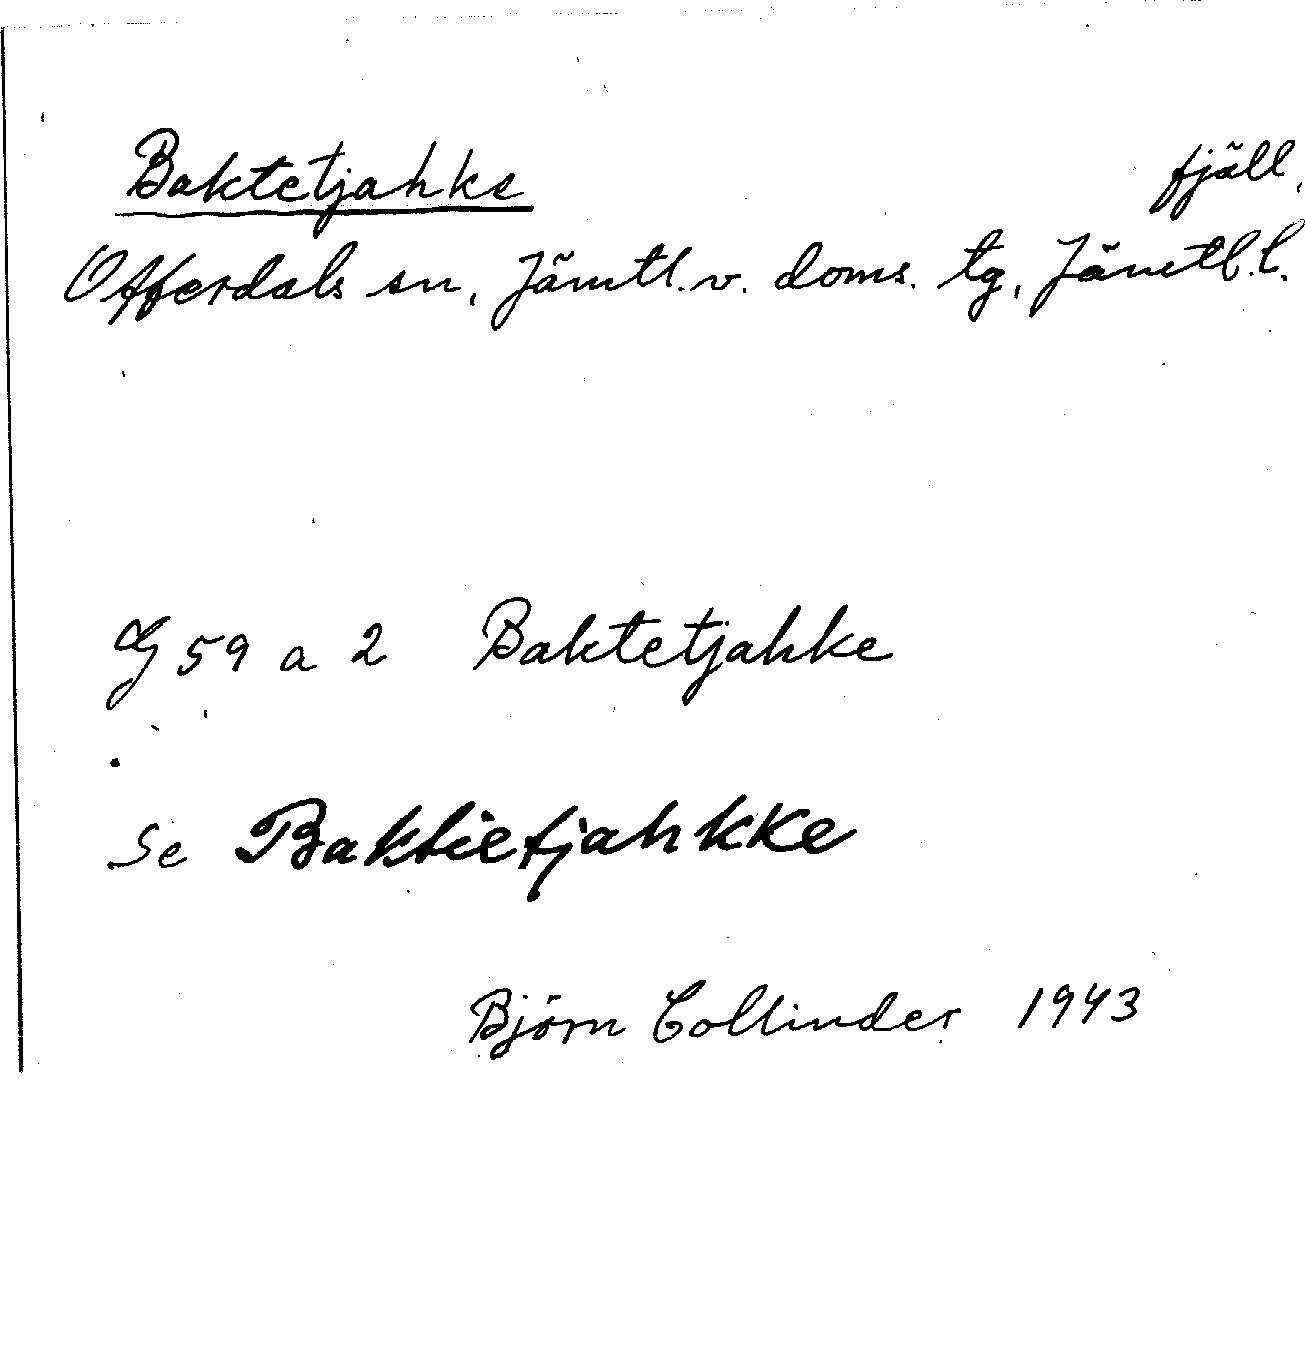 Baktetjahke fjäll,
Offerdals sn, Jämtl. v. doms. tg, Jämtl. l.
G 59 a 2 Baktetjahke
Se Baktietjahkke
Björn Collinder 1943